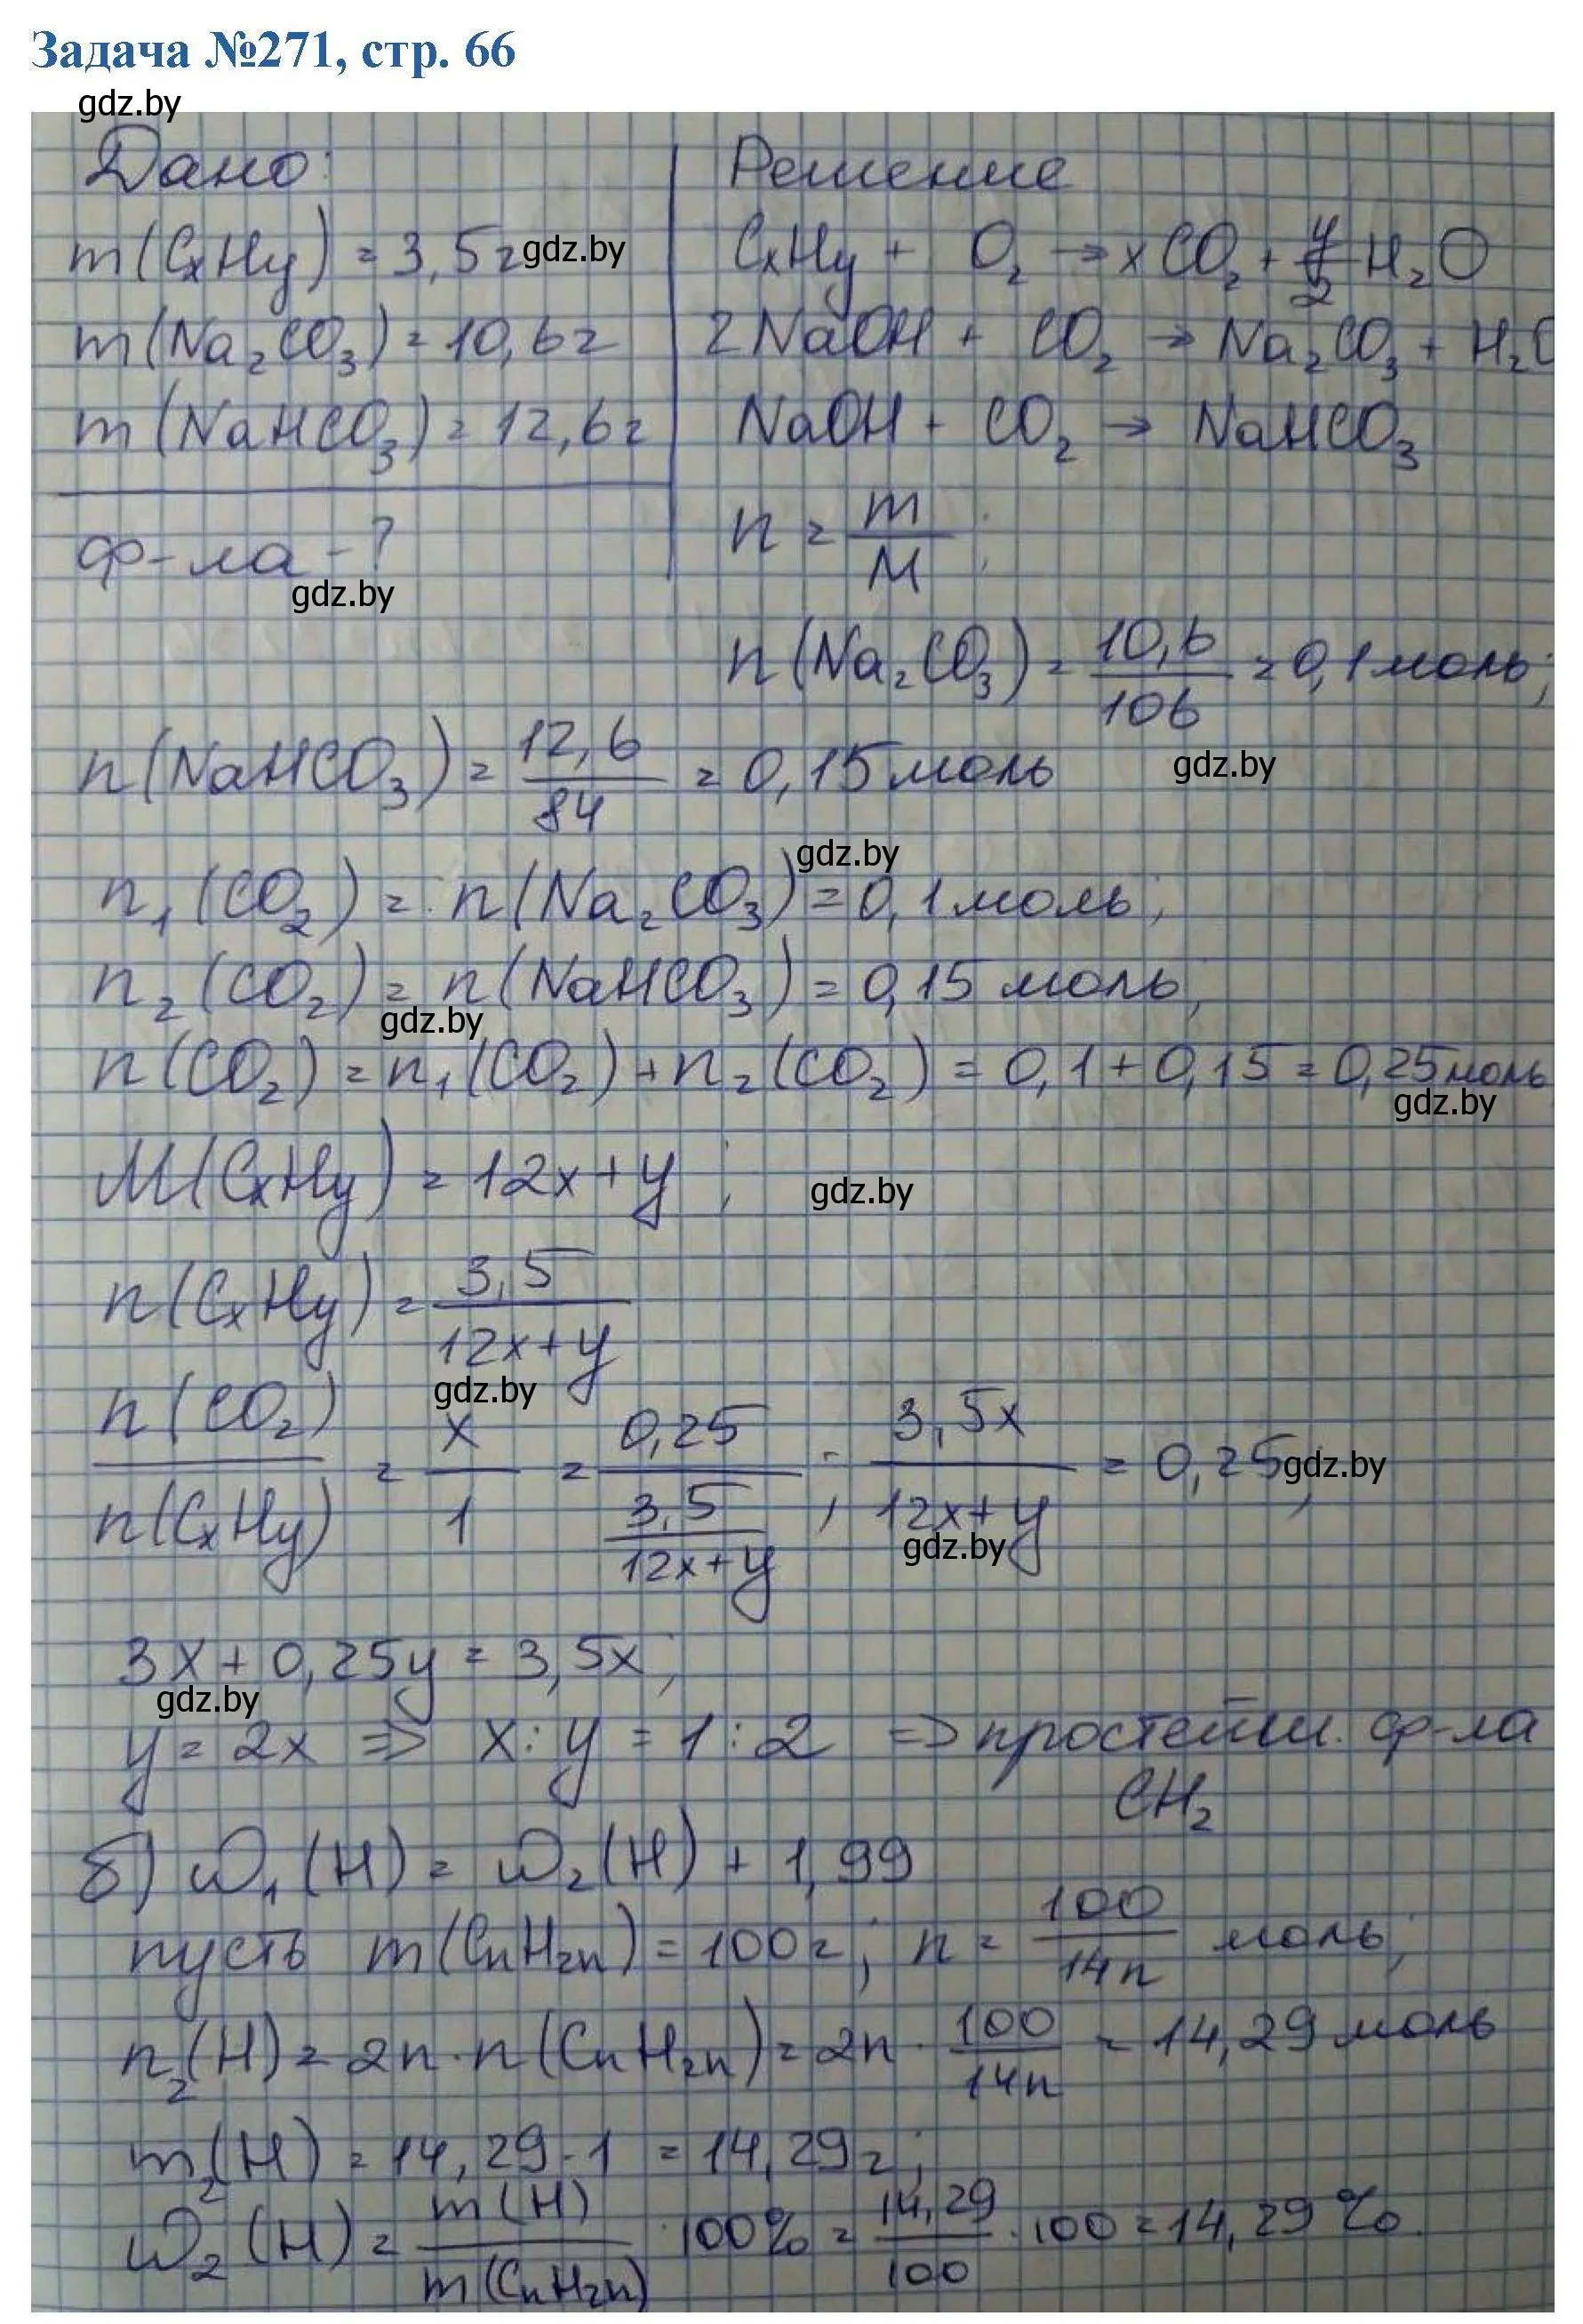 Задача №271, стр. 66
gdz.by
Дано: Решение
m(CₓHy) = 3,5г gdz.by CₓHy + O₂ → xCO₂ + y/2 H₂O
m(Na₂CO₃) = 10,6г 2NaOH + CO₂ → Na₂CO₃ + H₂O
m(NaHCO₃) = 12,6г NaOH + CO₂ → NaHCO₃
ф-ла - ? n = m/M;
gdz.by
n(Na₂CO₃) = 10,6/106 = 0,1 моль;
n(NaHCO₃) = 12,6/84 = 0,15 моль
gdz.by
gdz.by
n₁(CO₂) = n(Na₂CO₃) = 0,1 моль;
n₂(CO₂) = n(NaHCO₃) = 0,15 моль;
gdz.by
n(CO₂) = n₁(CO₂) + n₂(CO₂) = 0,1 + 0,15 = 0,25 моль
gdz.by
M(CₓHy) = 12x + y; gdz.by
n(CₓHy) = 3,5/(12x+y)
gdz.by
n(CO₂)/n(CₓHy) = x/1 = 0,25/(3,5/(12x+y)); 3,5x/(12x+y) = 0,25; gdz.by
gdz.by
3x + 0,25y = 3,5x;
gdz.by
y = 2x ⇒ x : y = 1 : 2 ⇒ простейш. ф-ла
CH₂
б) ω₁(H) = ω₂(H) + 1,99
пусть m(CnH₂n) = 100г; n = 100/14n моль;
n₂(H) = 2n · n(CnH₂n) = 2n · 100/14n = 14,29 моль
m₂(H) = 14,29 · 1 = 14,29г;
ω₂(H) = m(H)/m(CnH₂n) · 100% = 14,29/100 · 100 = 14,29%.